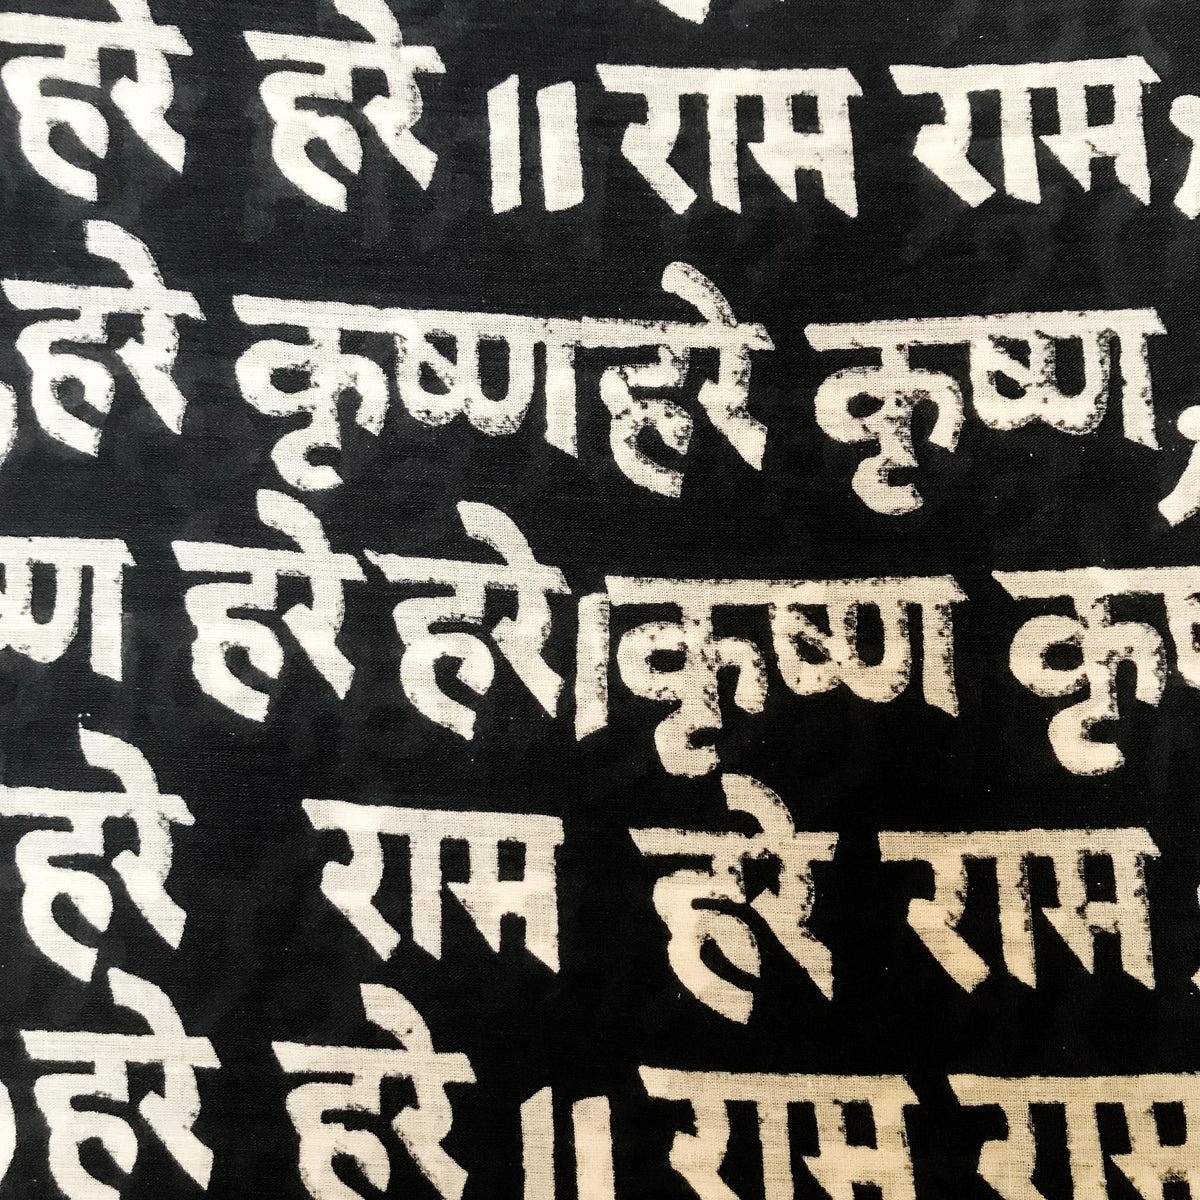 हरे हरे ॥ राम राम
हरे कृष्ण हरे कृष्ण
ष्ण हरे हरे । कृष्ण कृष
हरे राम हरे राम
हरे हरे ॥ राम राम